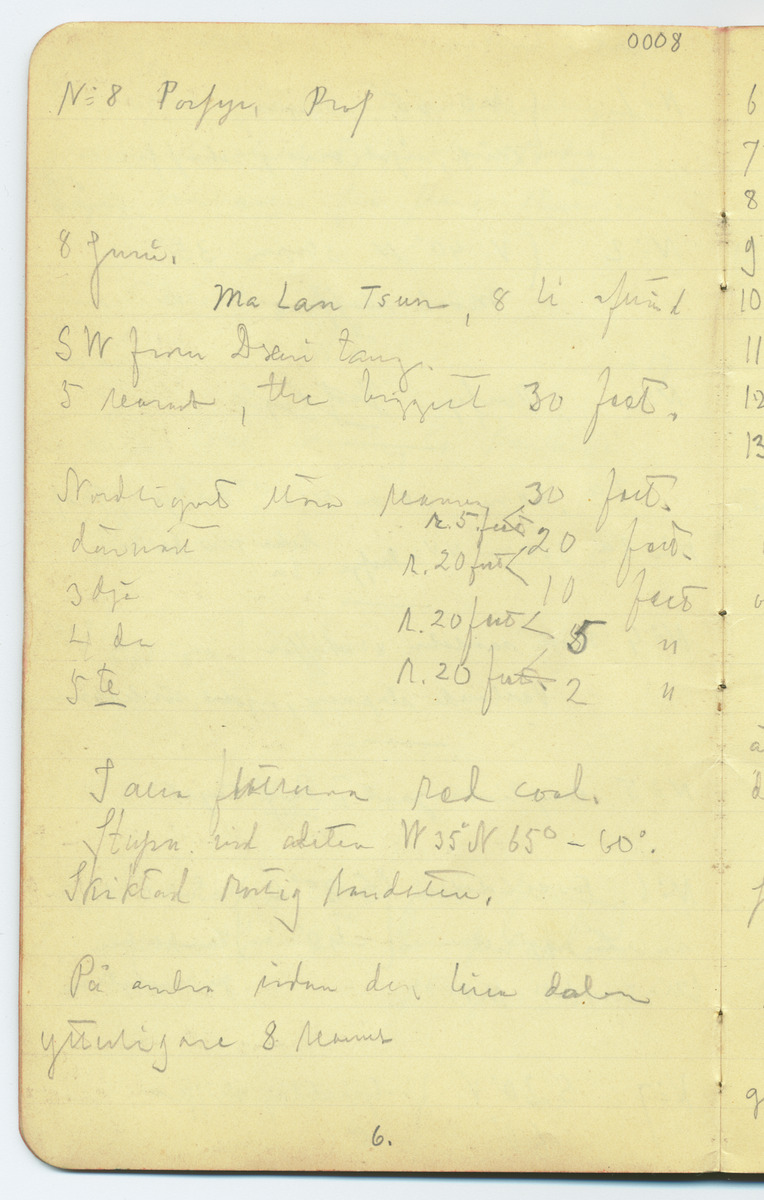 0008
No 8 Porfyr, Prof
8 Juni.
Ma Lan Tsun, 8 li afstånd
SW from tang.
5 seams, the biggest 30 feet.
Nordligaste stora seamen 30 feet.
r. 5 feet
därnäst 20 feet.
r. 20 feet
3 dje 10 feet
r. 20 feet
4 de 5 "
r. 20 feet
5 te 2 "
I alla red coal.
Stupn. vid W 35° N 65° – 60°.
Skiktad rostig sandsten.
På andra sidan den lilla dalen
ytterligare 8 seams
6.
6
7
8
9
10
11
12
13